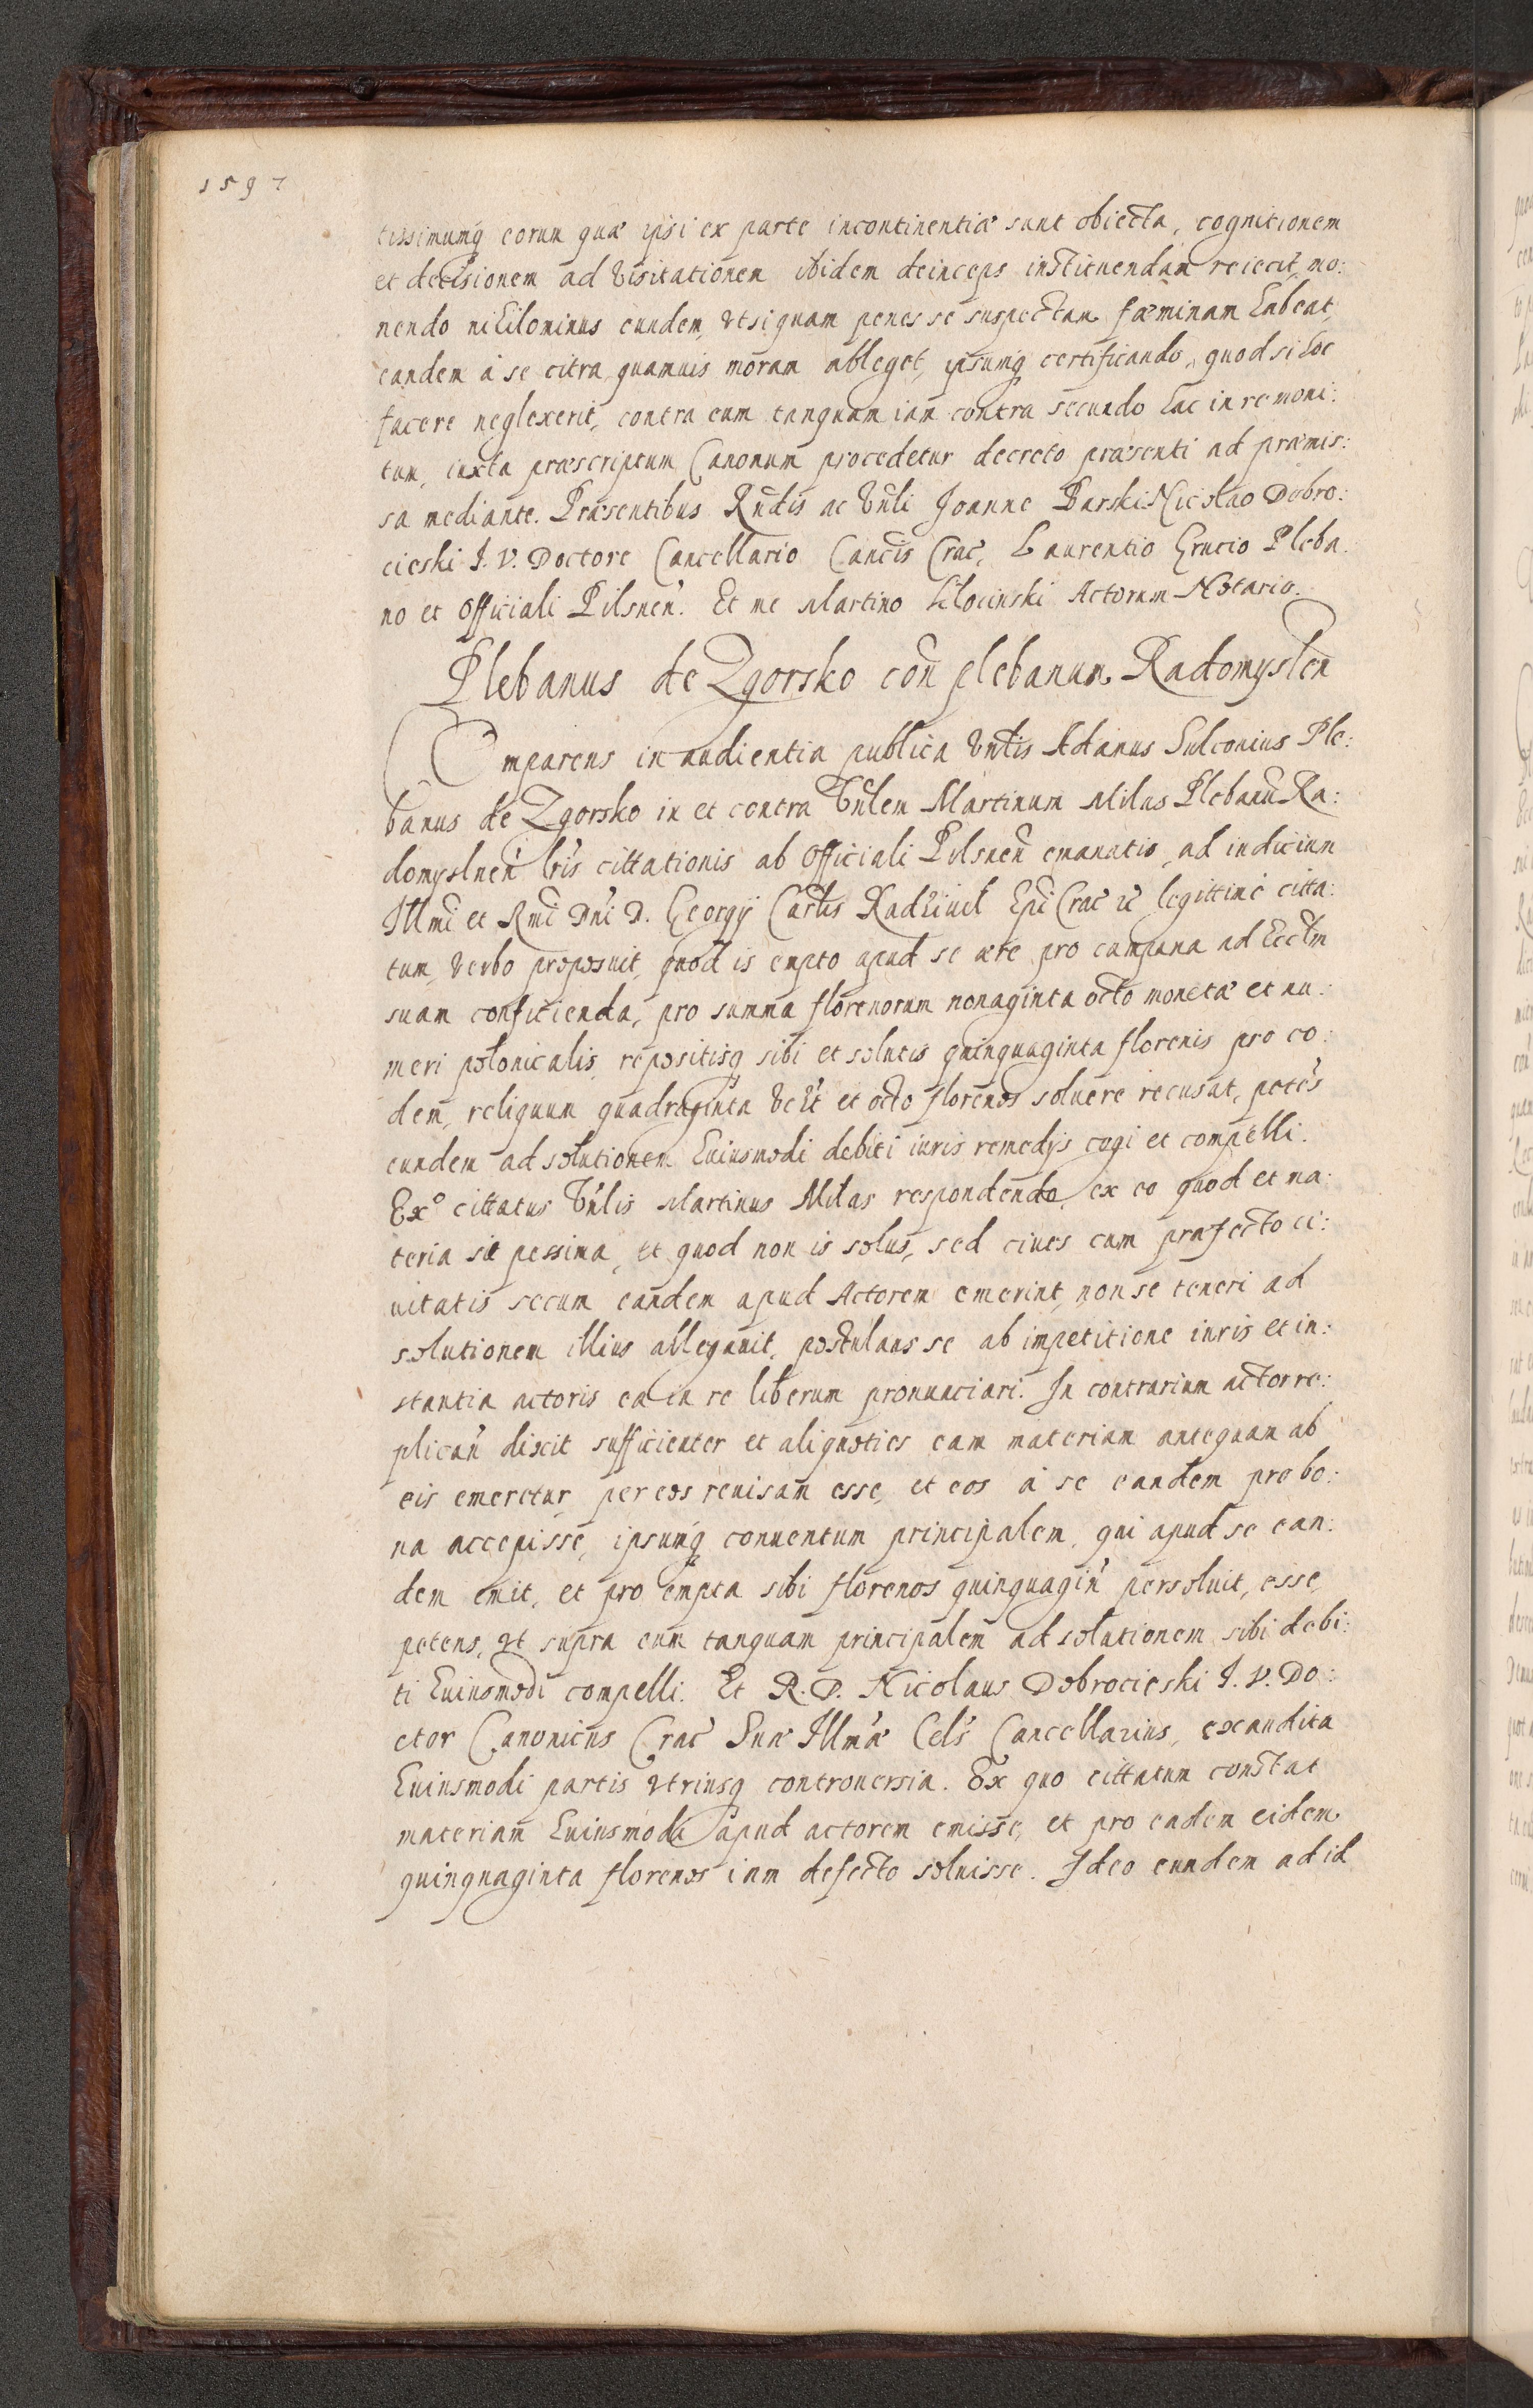 1597
tissimumq́ eorum quæ ipsi ex parte incontinentiæ sunt obiecta, cognitionem
et decisionem ad Visitationem ibidem deinceps instituendam reiecit, mo:
nendo nihilominus eundem, vt si quam penes se suspectam fæminam habeat,
eandem à se citra quamuis moram alleget, ipsumq́ certificando, quod si hoc
facere neglexerit, contra eum tanquam iam contra secundo hac in re moni:
tum, iuxta præscriptum Canonum procedetur decreto præsenti ad præmis:
sa mediante. Præsentibus Rndis ac Vnli Joanne Barski Nicolao Dobro:
cieski J. V. Doctore Cancellario Cancis Crac, Laurentio Grucio Pleba
no et Officiali Pilsnen. Et me Martino Kłocinski Actorum Notario.
Plebanus de Zgorsko con plebanum Radomyslen
Omparens in audientia publica Vndis Adamus Sulconius Ple:
banus de Zgorsko in et contra Vnlem Martinum Milas Plebanu Ra:
domyslnen lris cittationis ab Officiali Pilsnen emanatis, ad iudicium
Illmi et Rmi Dni D. Georgij Carlis Radziuil Epi Crac &c legittimè citta:
tum, verbo proposuit, quod is empto apud se ære pro campana ad Ecclm
suam conficienda, pro summa florenorum nonaginta octo monetæ et nu:
meri polonicalis, repositisq sibi et solutis quinquaginta florenis pro eo:
dem, reliquum quadraginta Vclt et octo florenos soluere recusat, petes
eundem ad solutionem huiusmodi debiti iuris remedijs cogi et compelli.
Exº cittatus Vnlis Martinus Milas respondendo, ex eo quod et ma:
teria sit pessima, et quod non is solus, sed ciues cum præfecto ci:
uitatis secum eandem apud Actorem emerint, non se teneri ad
solutionem illius allegauit, postulans se ab impetitione iuris et in:
stantia actoris ea in re liberum pronunciari. In contrarium actor re:
plican dixit sufficienter et aliquoties eam materiam antequam ab
eis emeretur, per eos reuisam esse, et eos à se eandem pro bo:
na accepisse, ipsumq́ conuentum principalem, qui apud se ean:
dem emit, et pro empta sibi florenos quinquagin persoluit, esse,
petens, vt supra eum tanquam principalem ad solutionem sibi debi:
ti huiusmodi compelli. Et R. D. Nicolaus Dobrocieski J. V. Do:
ctor Canonicus Crac Suæ Illmæ Cels Cancellarius, exaudita
huiusmodi partis vtriusq controuersia. Ex quo cittatum constat
materiam huiusmodi apud actorem emisse, et pro eadem eidem
quinquaginta florenos iam defecto soluisse. Ideo eundem ad id